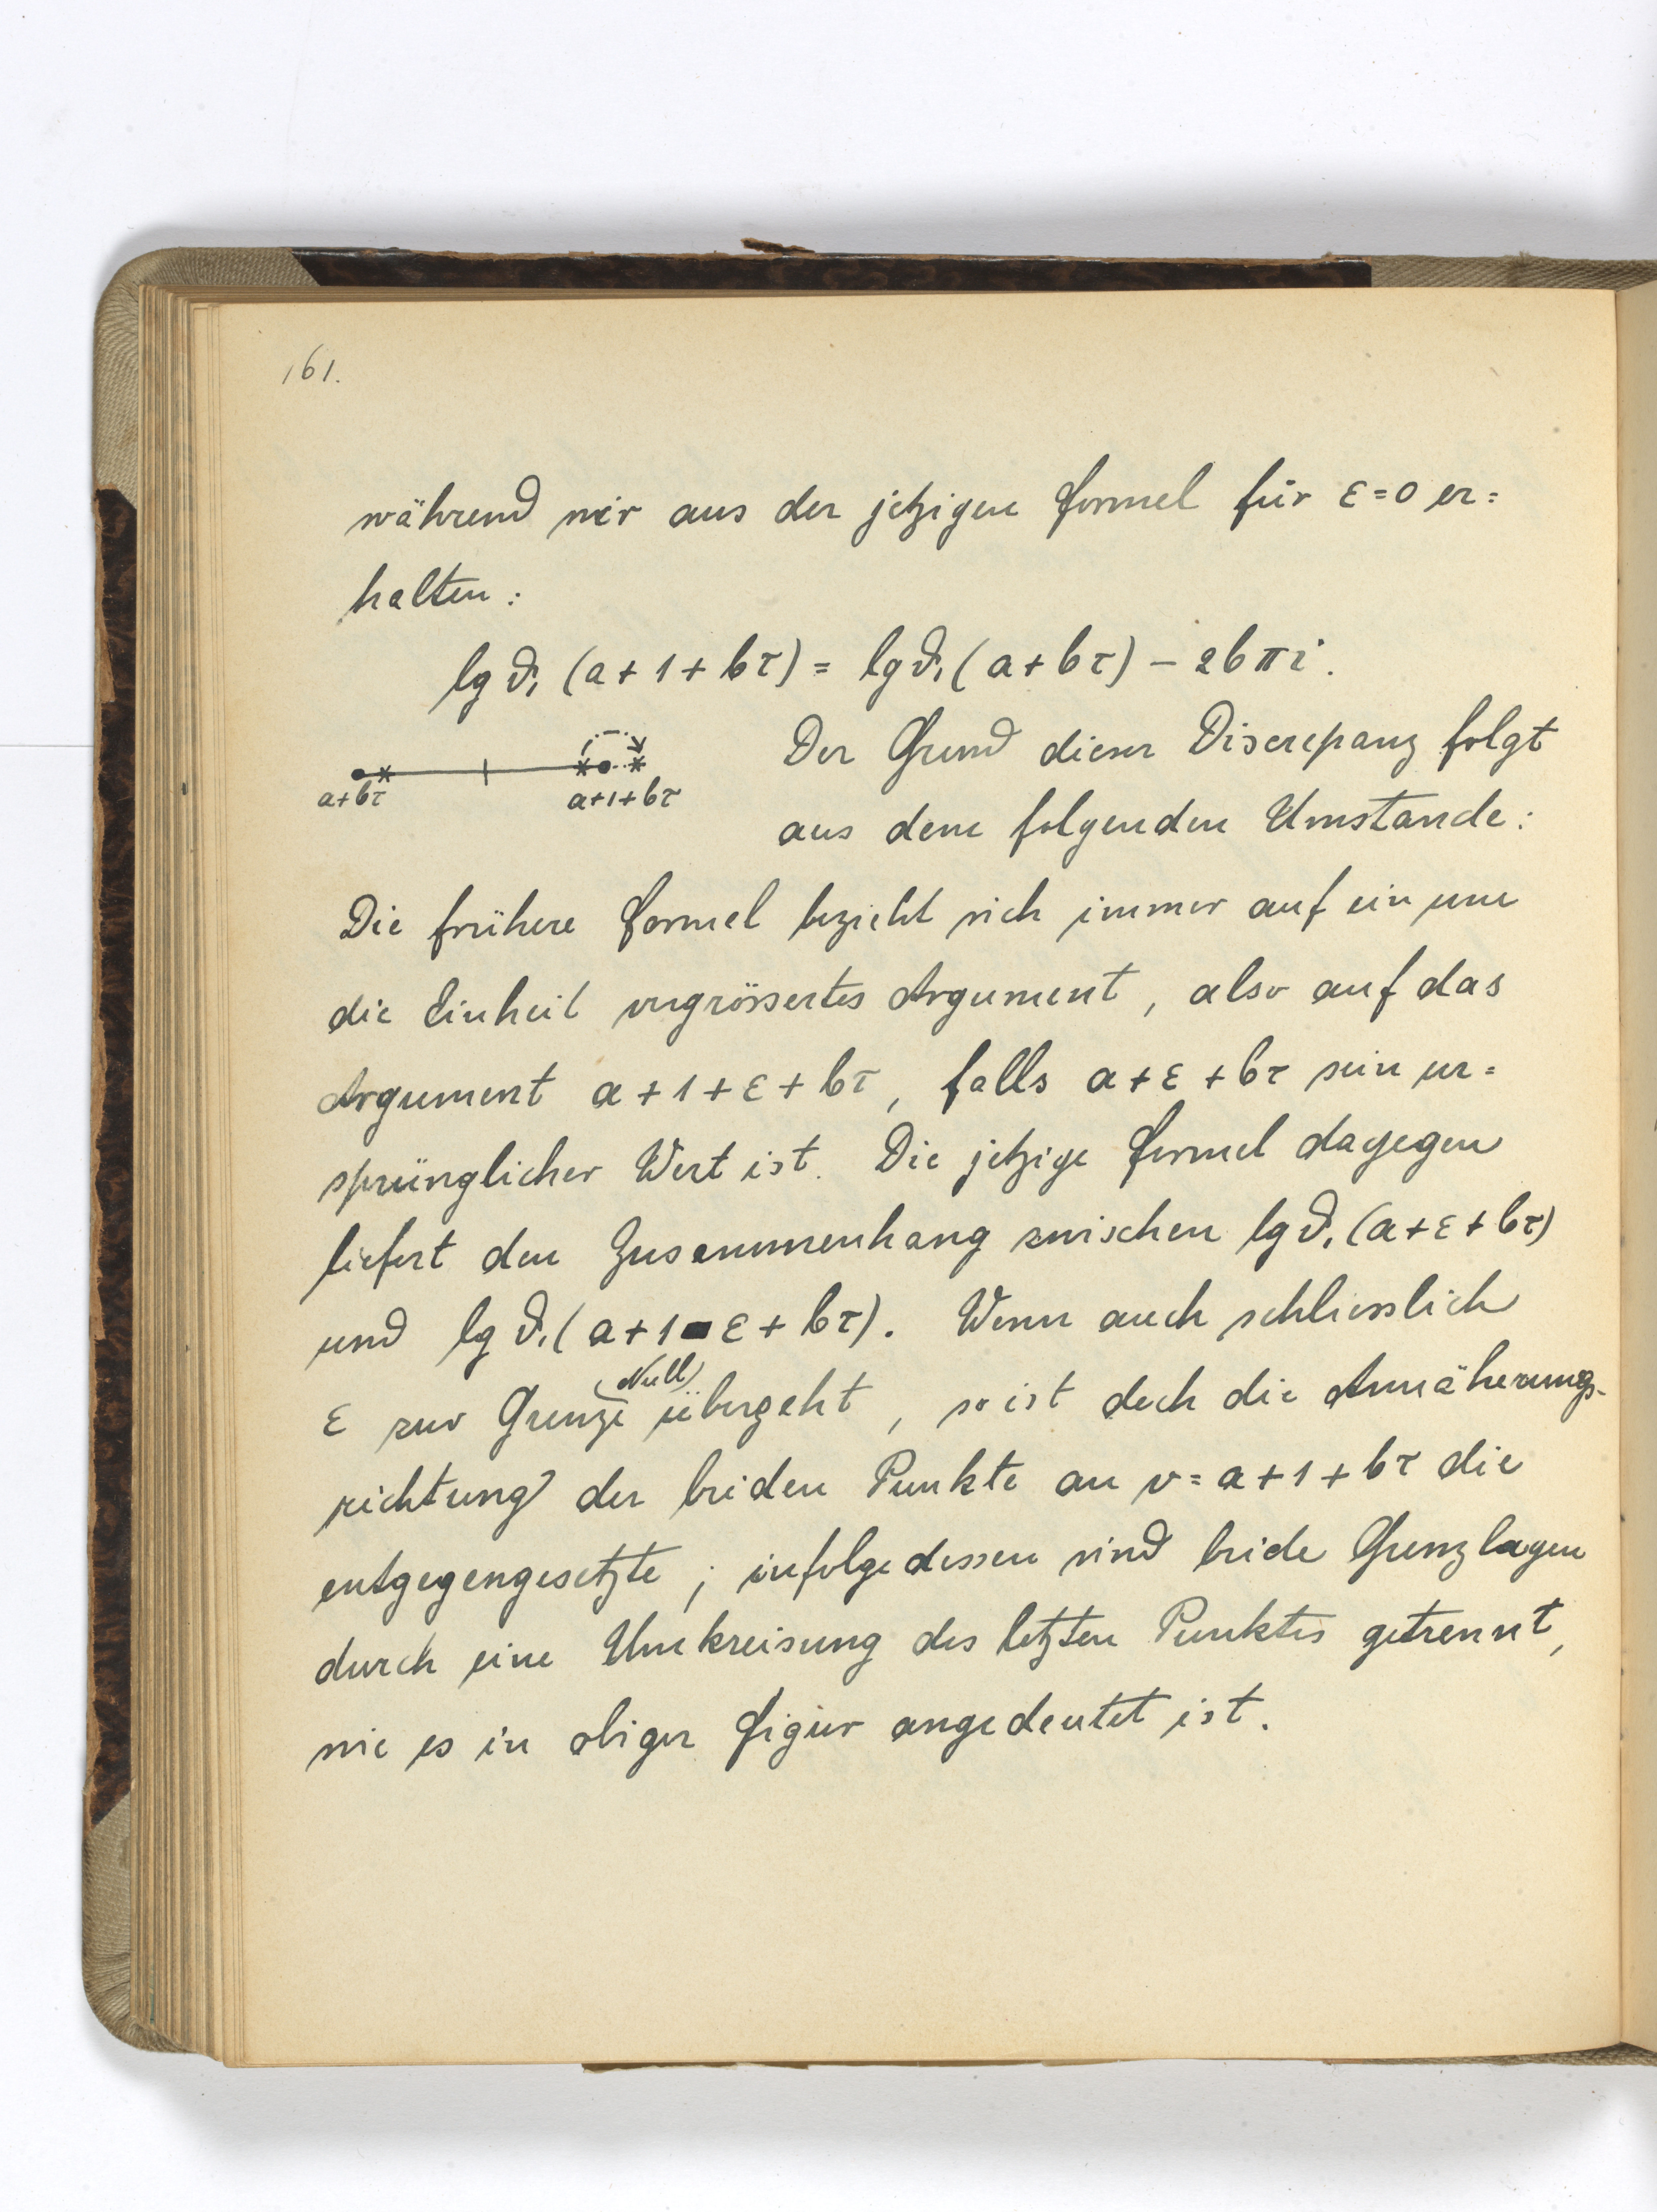 161.
während wir aus der jetzigen Formel für ε=0 er=
halten:
lg ϑ₁ (a+1+bτ) = lg ϑ₁ (a+bτ) – 2bπi.
Der Grund dieser Discrepanz folgt
a+bτ a+1+bτ
aus dem folgenden Umstande:
Die frühere Formel bezieht sich immer auf ein um
die Einheit vergrössertes Argument, also auf das
Argument a+1+ε+bτ, falls a+ε+bτ sein ur=
sprünglicher Wert ist. Die jetzige Formel dagegen
liefert den Zusammenhang zwischen lg ϑ₁ (a+ε+bτ)
und lg ϑ₁ (a+1-ε+bτ). Wenn auch schliesslich
ε zur Grenze (Null) übergeht, so ist doch die Annäherungs-
richtung der beiden Punkte an v=a+1+bτ die
entgegengesetzte; infolgedessen sind beide Grenzlagen
durch eine Umkreisung des letzten Punktes getrennt,
wie es in obiger Figur angedeutet ist.